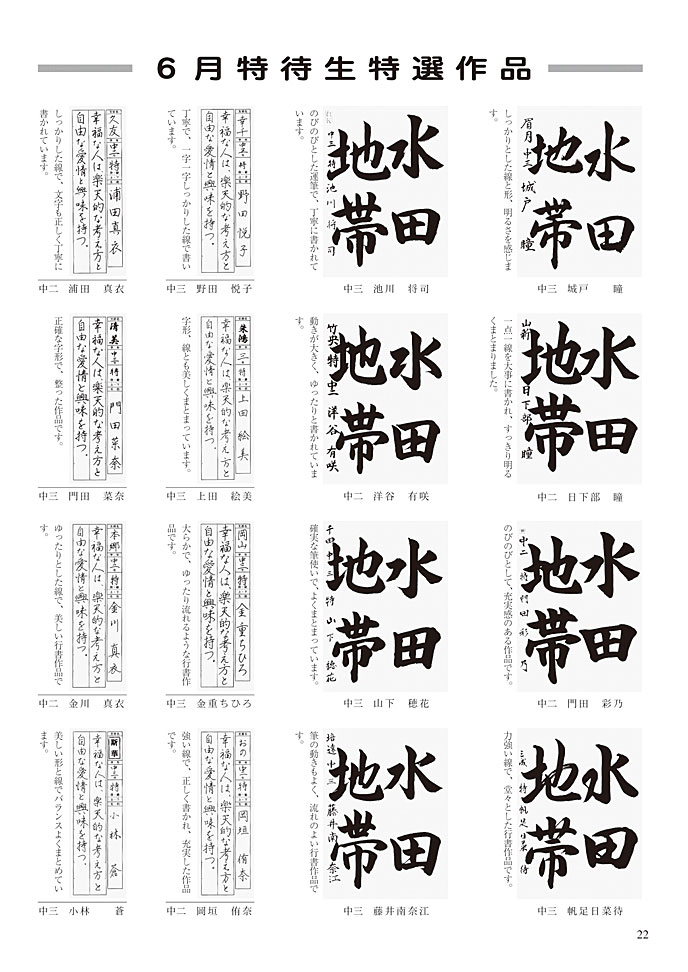 6月特待生特選作品
水田
地帯
眉月 中三 城戸 瞳
しっかりとした線と形、明るさを感じます。
中三 城戸 瞳
水田
地帯
中三 特 池川将司
のびのびとした運筆で、丁寧に書かれています。
中三 池川 将司
幸千 中三 特 野田悦子
幸福な人は、楽天的な考え方と
自由な愛情と興味を持つ。
丁寧で、一字一字しっかりした線で書いています。
中三 野田 悦子
久友 中二 特 浦田真衣
幸福な人は、楽天的な考え方と
自由な愛情と興味を持つ。
しっかりした線で、文字も正しく丁寧に書かれています。
中二 浦田 真衣
水田
地帯
日下部 瞳
一点一線を大事に書かれ、すっきり明るくまとまりました。
中二 日下部 瞳
水田
地帯
竹央 特 中二 洋谷有咲
動きが大きく、ゆったりと書かれています。
中二 洋谷 有咲
朱鴻 三 特 上田絵美
幸福な人は、楽天的な考え方と
自由な愛情と興味を持つ。
字形、線とも美しくまとまっています。
中三 上田 絵美
清美 中三 特 門田菜奈
幸福な人は、楽天的な考え方と
自由な愛情と興味を持つ。
正確な字形で、整った作品です。
中三 門田 菜奈
水田
地帯
中二 特 門田彩乃
のびのびとして、充実感のある作品です。
中二 門田 彩乃
水田
地帯
千四 中三 特 山下穂花
確実な筆使いで、よくまとまっています。
中三 山下 穂花
岡山 中三 特 金重ちひろ
幸福な人は、楽天的な考え方と
自由な愛情と興味を持つ。
大らかで、ゆったり流れるような行書作品です。
中三 金重ちひろ
本郷 中二 特 金川真衣
幸福な人は、楽天的な考え方と
自由な愛情と興味を持つ。
ゆったりとした線で、美しい行書作品です。
中二 金川 真衣
水田
地帯
特 帆足日菜待
力強い線で、堂々とした行書作品です。
中三 帆足日菜待
水田
地帯
培遠 中三 藤井南奈江
筆の動きもよく、流れのよい行書作品です。
中三 藤井南奈江
おの 中二 特 岡垣侑奈
幸福な人は、楽天的な考え方と
自由な愛情と興味を持つ。
強い線で、正しく書かれ、充実した作品です。
中二 岡垣 侑奈
新華 中三 特 小林蒼
幸福な人は、楽天的な考え方と
自由な愛情と興味を持つ。
美しい形と線でバランスよくまとめています。
中三 小林 蒼
22